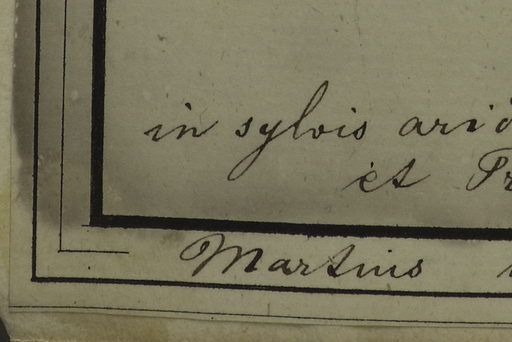 in sylvis arid
et Pr
Martius